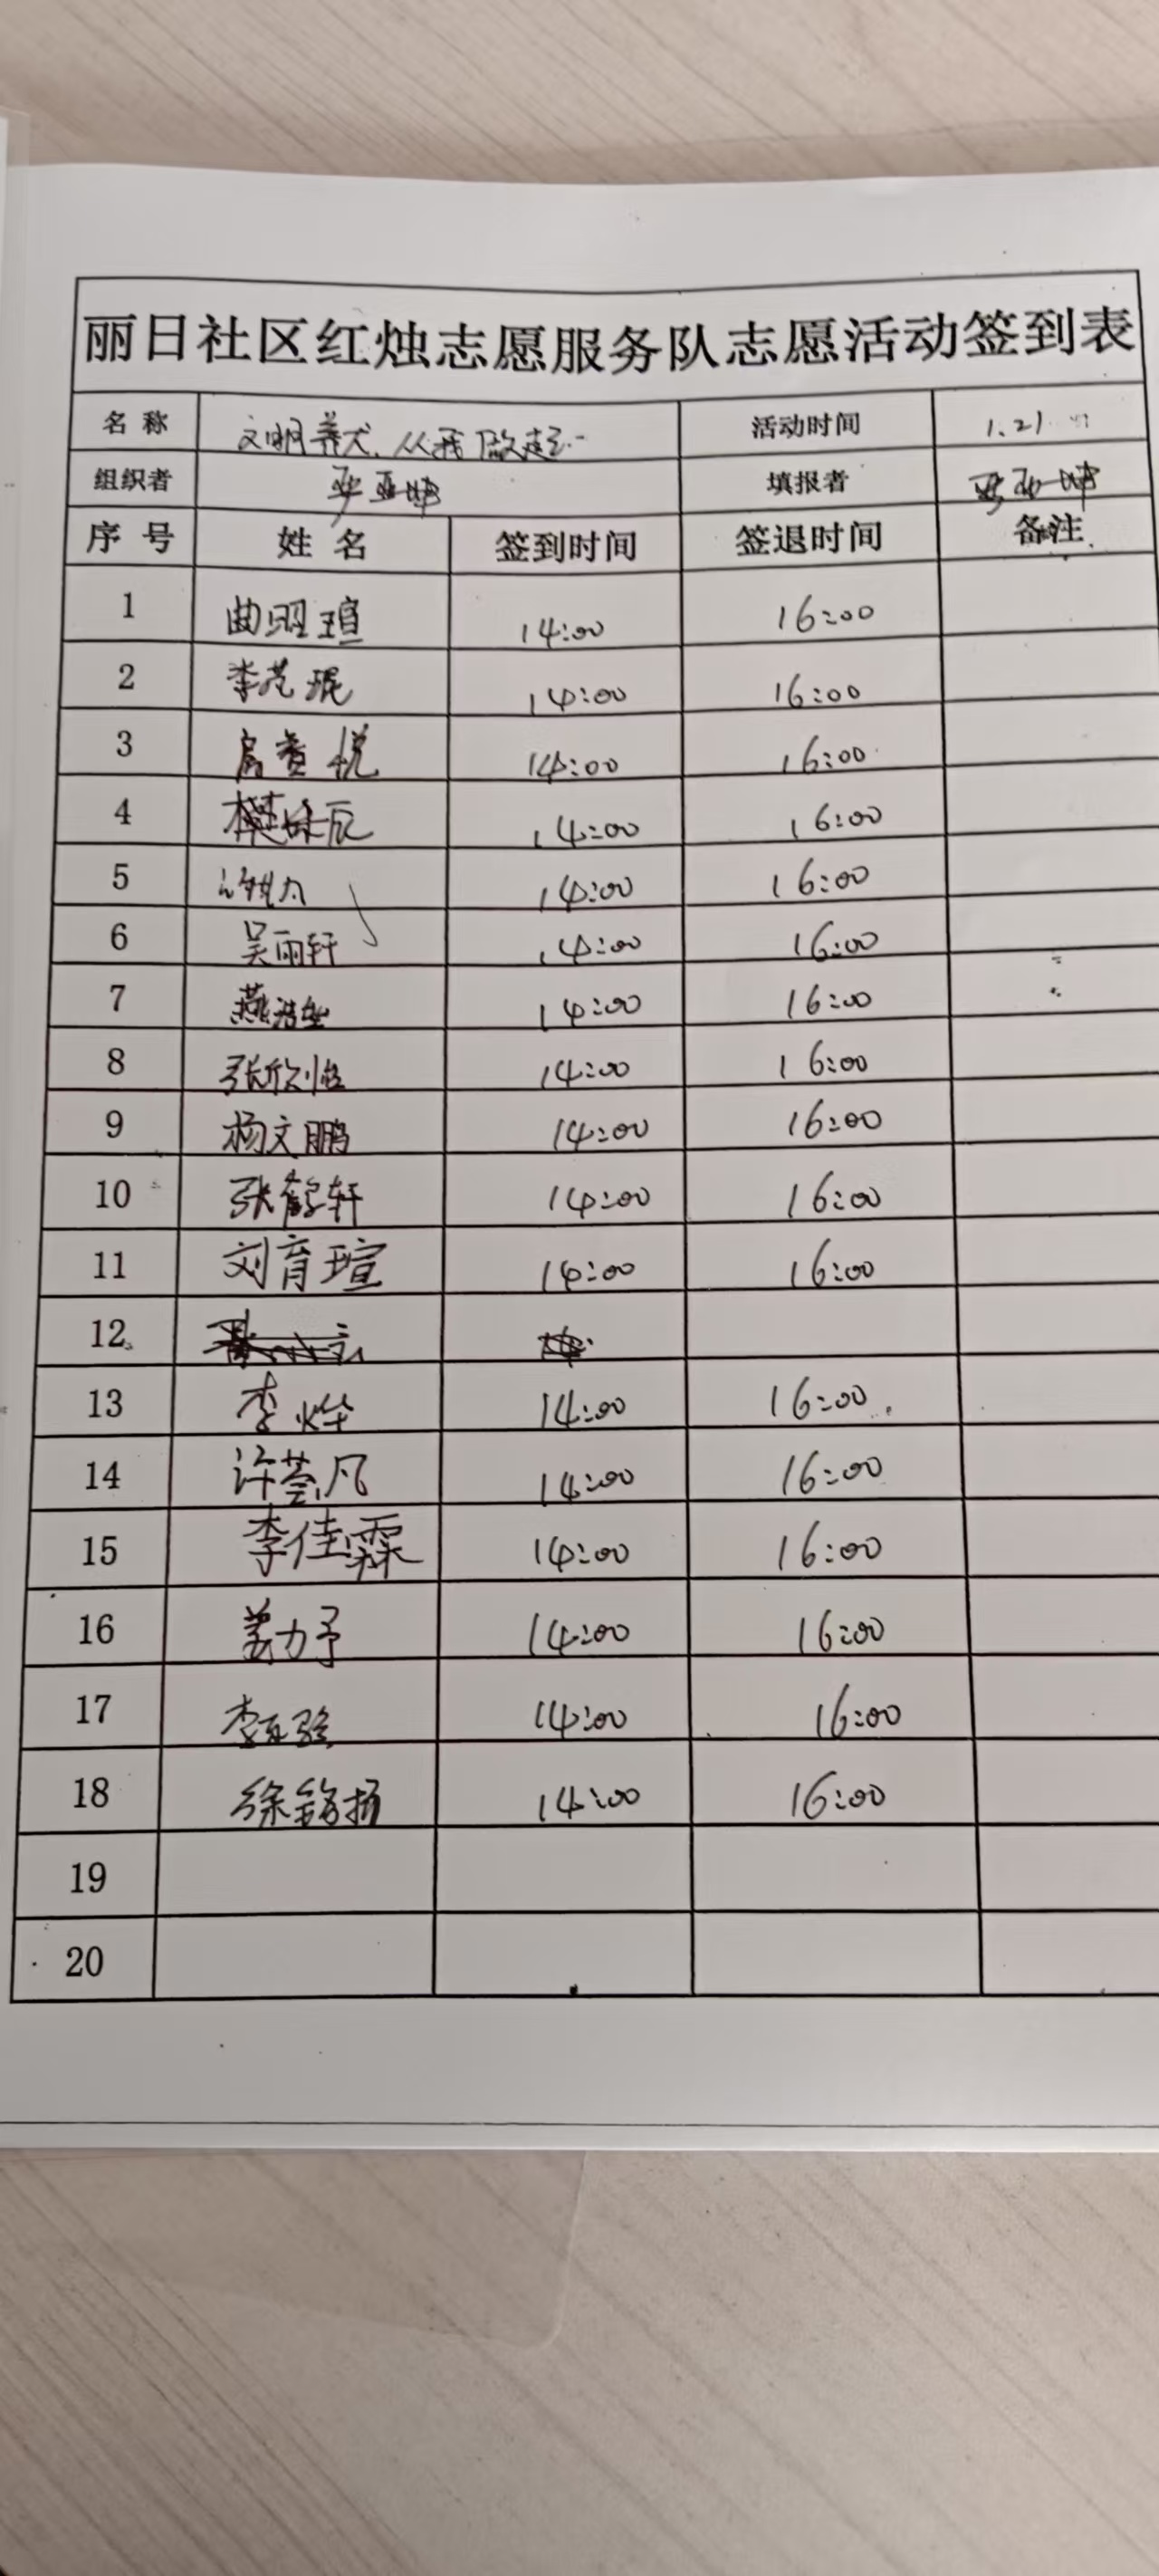 丽日社区红烛志愿服务队志愿活动签到表
名 称 文明养犬,从我做起 活动时间 1.21
组织者 严亚坤 填报者 严亚坤
序 号 姓 名 签到时间 签退时间 备注
1 曲昭瑄 14:00 16:00
2 李范琨 14:00 16:00
3 房黄悦 14:00 16:00
4 14:00 16:00
5 14:00 16:00
6 吴雨轩 14:00 16:00
7 燕浩 14:00 16:00
8 张欣怡 14:00 16:00
9 杨文鹏 14:00 16:00
10 张鹤轩 14:00 16:00
11 刘育瑄 14:00 16:00
12
13 李烨 14:00 16:00
14 许芸凡 14:00 16:00
15 李佳霖 14:00 16:00
16 姜力予 14:00 16:00
17 李 14:00 16:00
18 徐铭扬 14:00 16:00
19
20